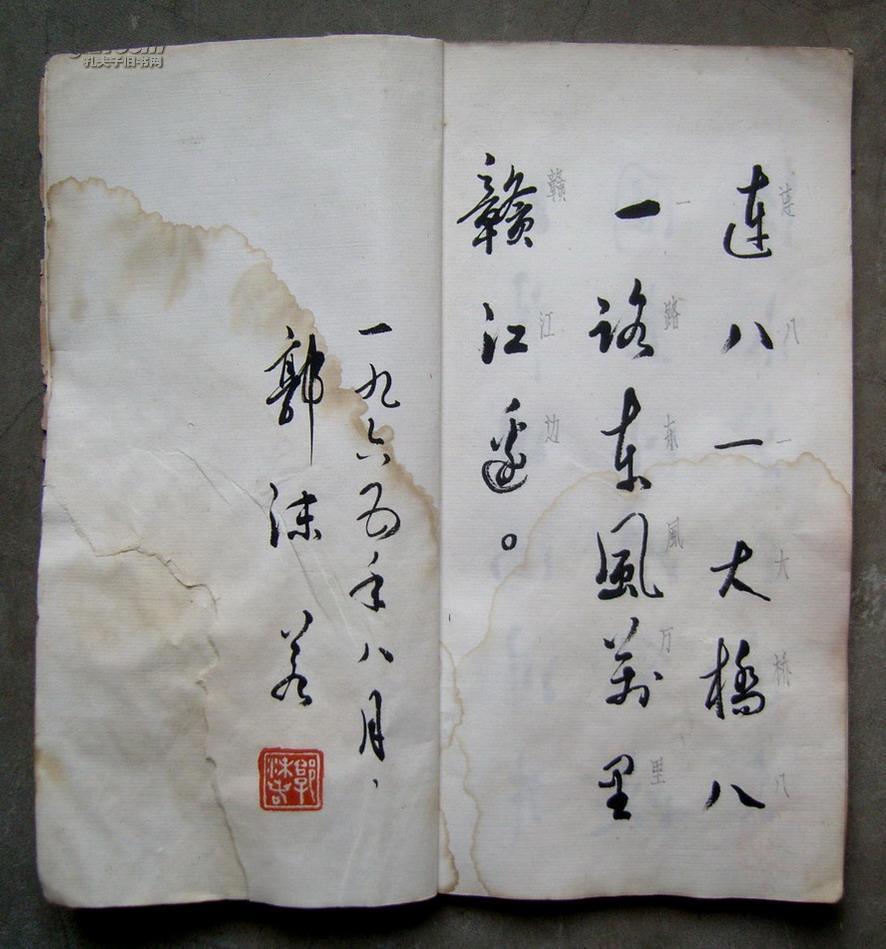 連八一大橋八
一路东風萬里
贛江邊。
一九六五年八月，
郭沫若
郭沫若
連八一大桥八
一路东風万里
赣江边
孔夫子旧书网